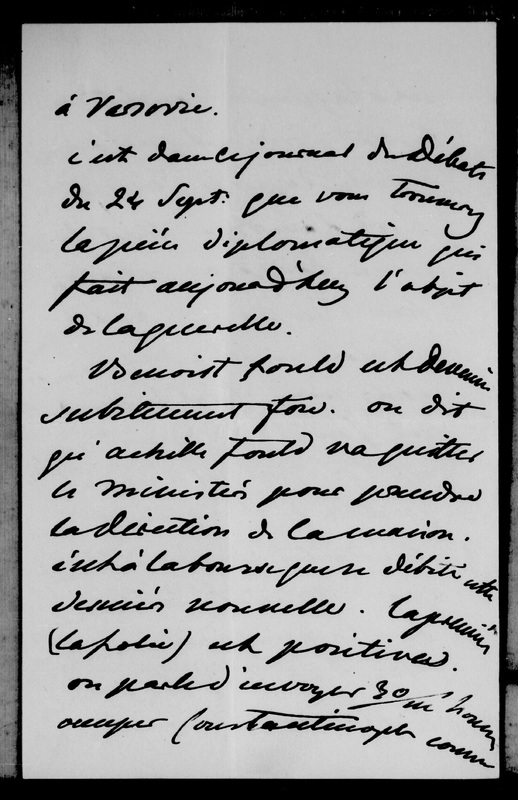 à Varsovie.
c'est dans le journal des Débats
du 24 Sept. que vous trouverez
la pièce diplomatique qui
fait aujourd'huy l'objet
de la querelle.
Benoist fould est devenu
subitement fou. on dit
qu'achille fould va quitter
le ministère pour prendre
la direction de la maison.
c'est à la bourse que se débite cette
dernière nouvelle. la première
(la folie) est positive.
on parle d'envoyer 30/m hommes
occuper Constantinople comme